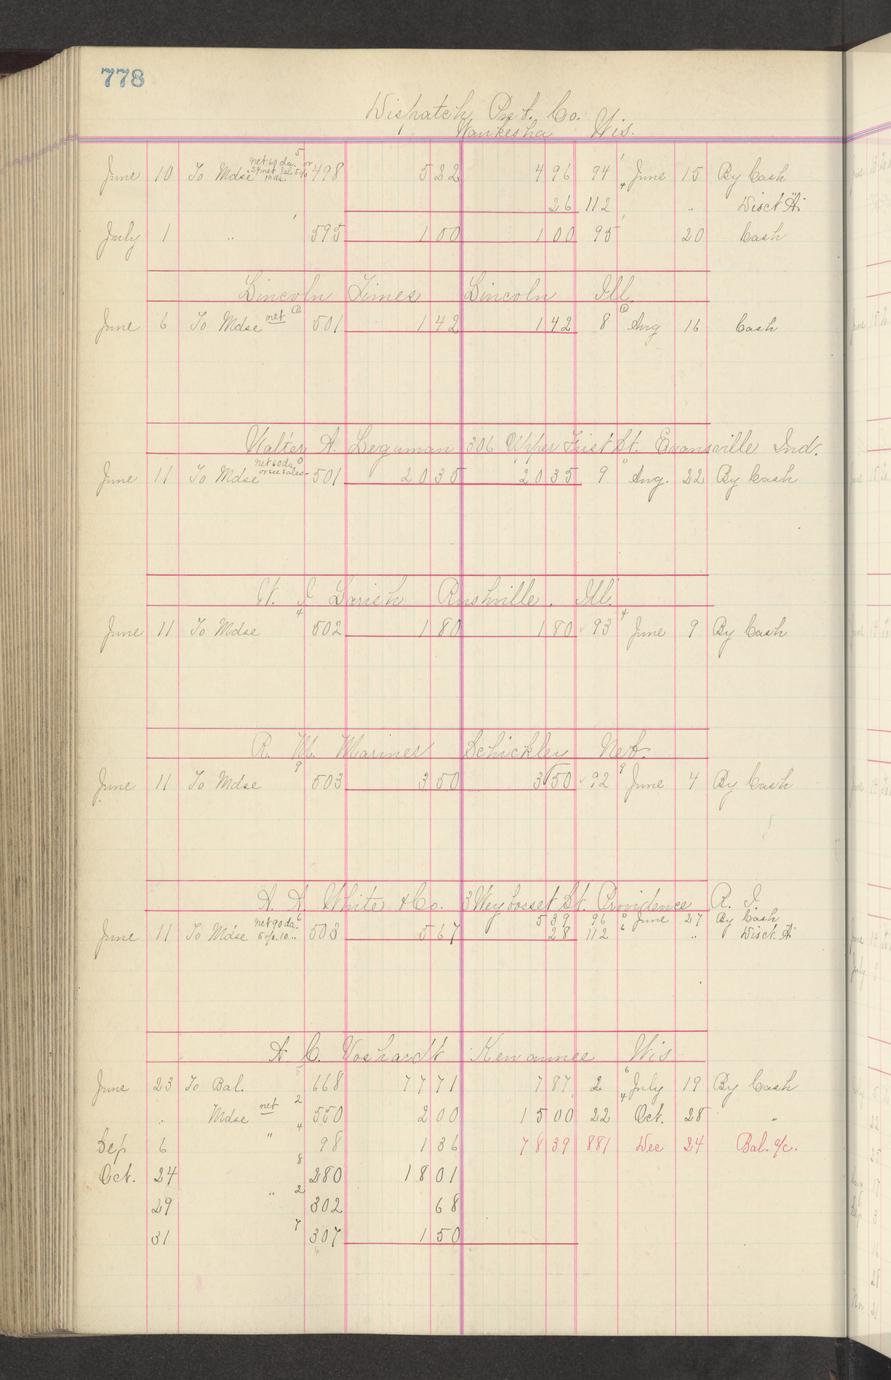 778
Dispatch Prt. Co.
Waukesha Wis.
June 10 To Mdse net 60 da. 5 498 5 22 4 96 94 June 15 By Cash
26 112 " Disct A
July 1 " 595 1 00 1 00 95 20 Cash
Lincoln Times Lincoln Ill.
June 6 To Mdse net 501 1 42 1 42 8 Aug 16 Cash
Walter A. 306 Upper First St. Evansville Ind.
June 11 To Mdse net 60 da 501 20 35 20 35 9 Aug. 22 By Cash
Rushville, Ill.
June 11 To Mdse 4 502 1 80 1 80 93 4 June 9 By Cash
R. M. Marines Schickley Neb.
June 11 To Mdse 9 503 3 50 3 50 92 9 June 4 By Cash
A. A. White & Co. 3 Weybosset St. Providence R. I.
5 39 96 June 27 By Cash
June 11 To Mdse net 90 da. 6 5% 10 " 503 5 67 28 112 6 " Disct. A
A C. Voshardt Kewaunee Wis
June 23 To Bal. 668 77 71 7 87 2 6 July 19 By Cash
" Mdse net 2 550 2 00 15 00 22 4 Oct. 28 "
Sep 6 " 4 98 1 36 78 39 881 Dec 24 Bal. a/c.
Oct. 24 8 280 18 01
29 " 2 302 68
31 7 307 1 50